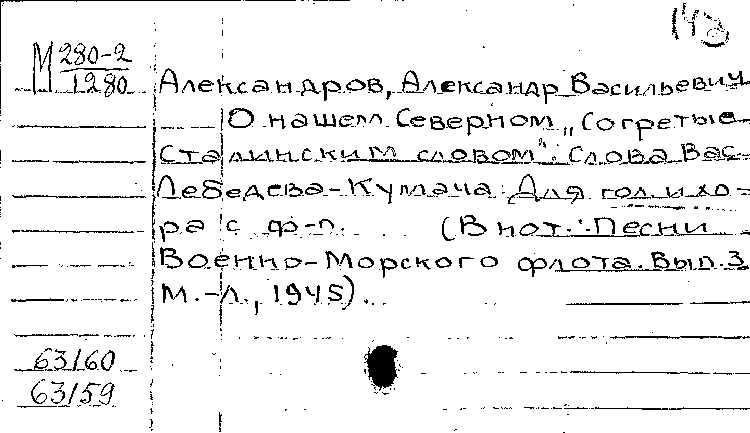 142
М 280-2
1280
Александров, Александр Васильевич
О нашем Северном „Согретые
Сталинским словом". Слова Вас.
Лебедева-Кумача. Для гол. и хо-
ра с ф-п. (В нот.: Песни
Военно-Морского флота. Вып. 3
М.-Л., 1945).
63/60
63/59